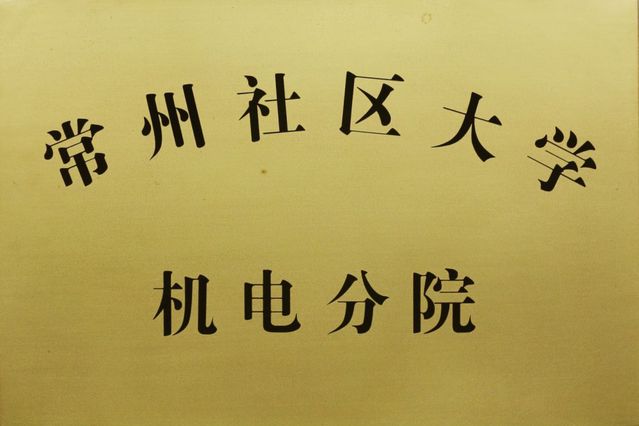 常州社区大学
机电分院